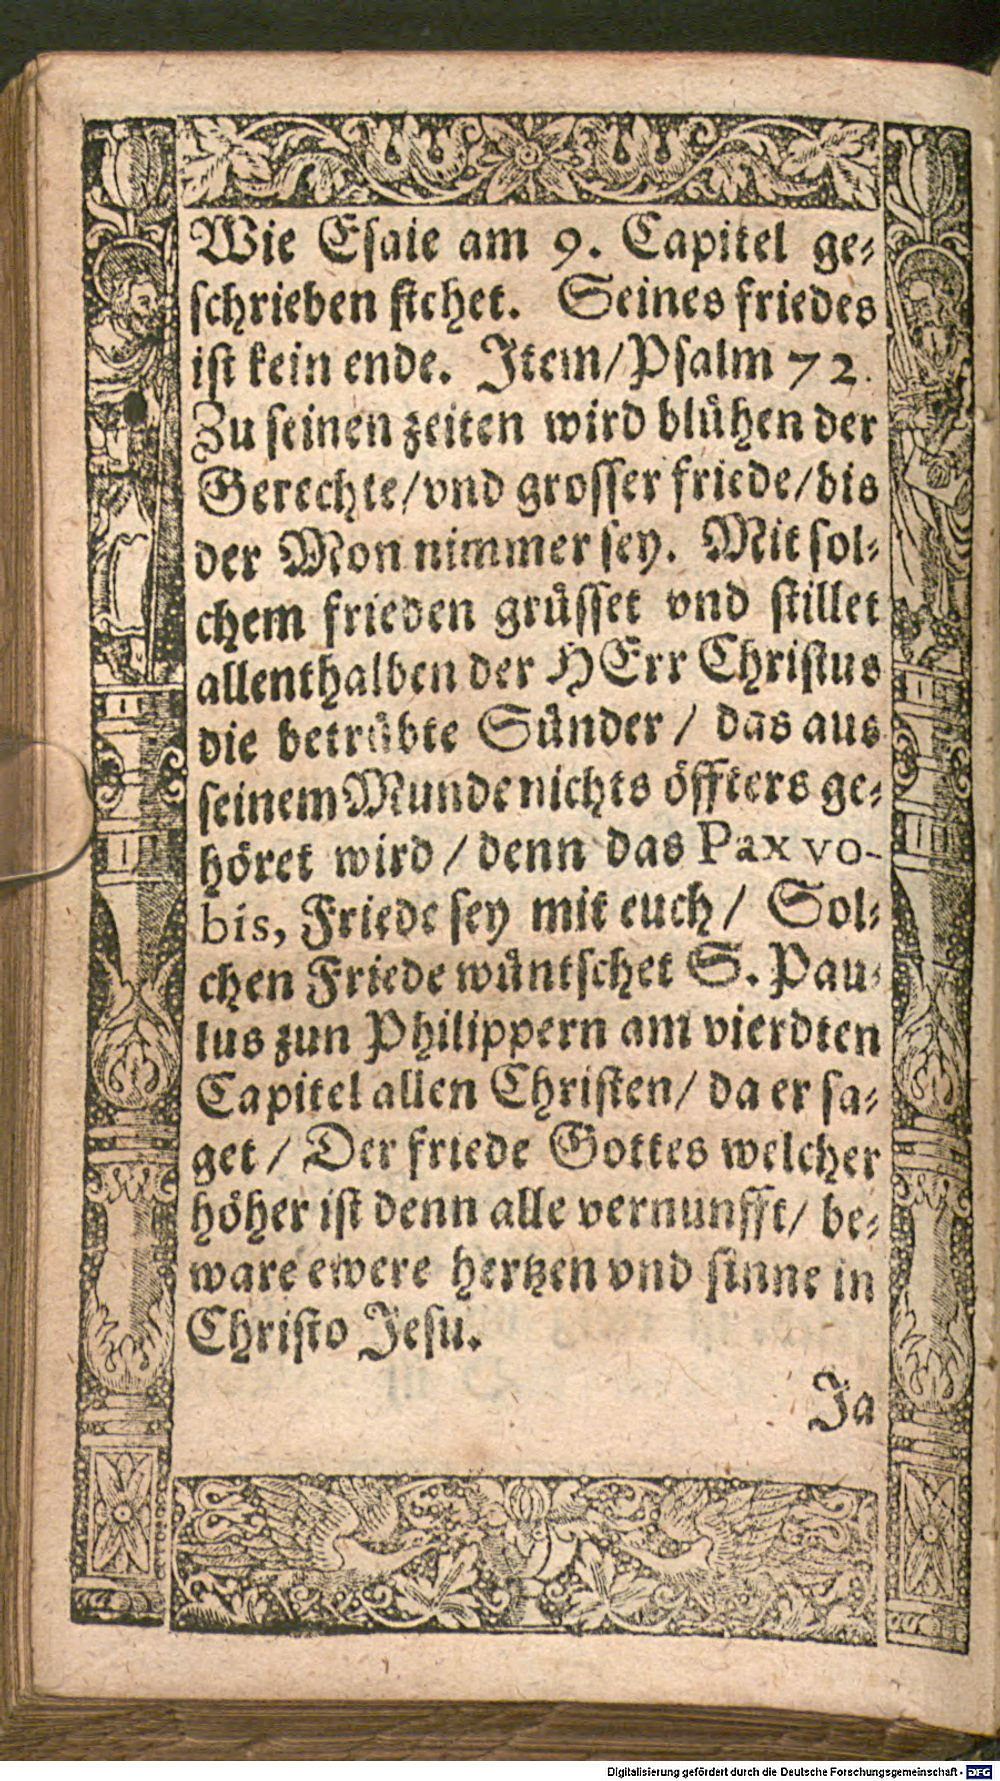 Wie Esaie am 9. Capitel ge⸗
schrieben stehet. Seines friedes
ist kein ende. Item/Psalm 72.
Zu seinen zeiten wird blühen der
Gerechte/vnd grosser friede/bis
der Mon nimmer sey. Mit sol⸗
chem frieden grüsset vnd stillet
allenthalben der HErr Christus
die betrübte Sünder / das aus
seinem Munde nichts öffters ge⸗
höret wird / denn das Pax vo-
bis, Friede sey mit euch / Sol⸗
chen Friede wüntschet S. Pau⸗
lus zun Philippern am vierdten
Capitel allen Christen/ da er sa⸗
get / Der friede Gottes welcher
höher ist denn alle vernunfft/ be⸗
ware ewere hertzen vnd sinne in
Christo Jesu.
Ja
Digitalisierung gefördert durch die Deutsche Forschungsgemeinschaft - DFG